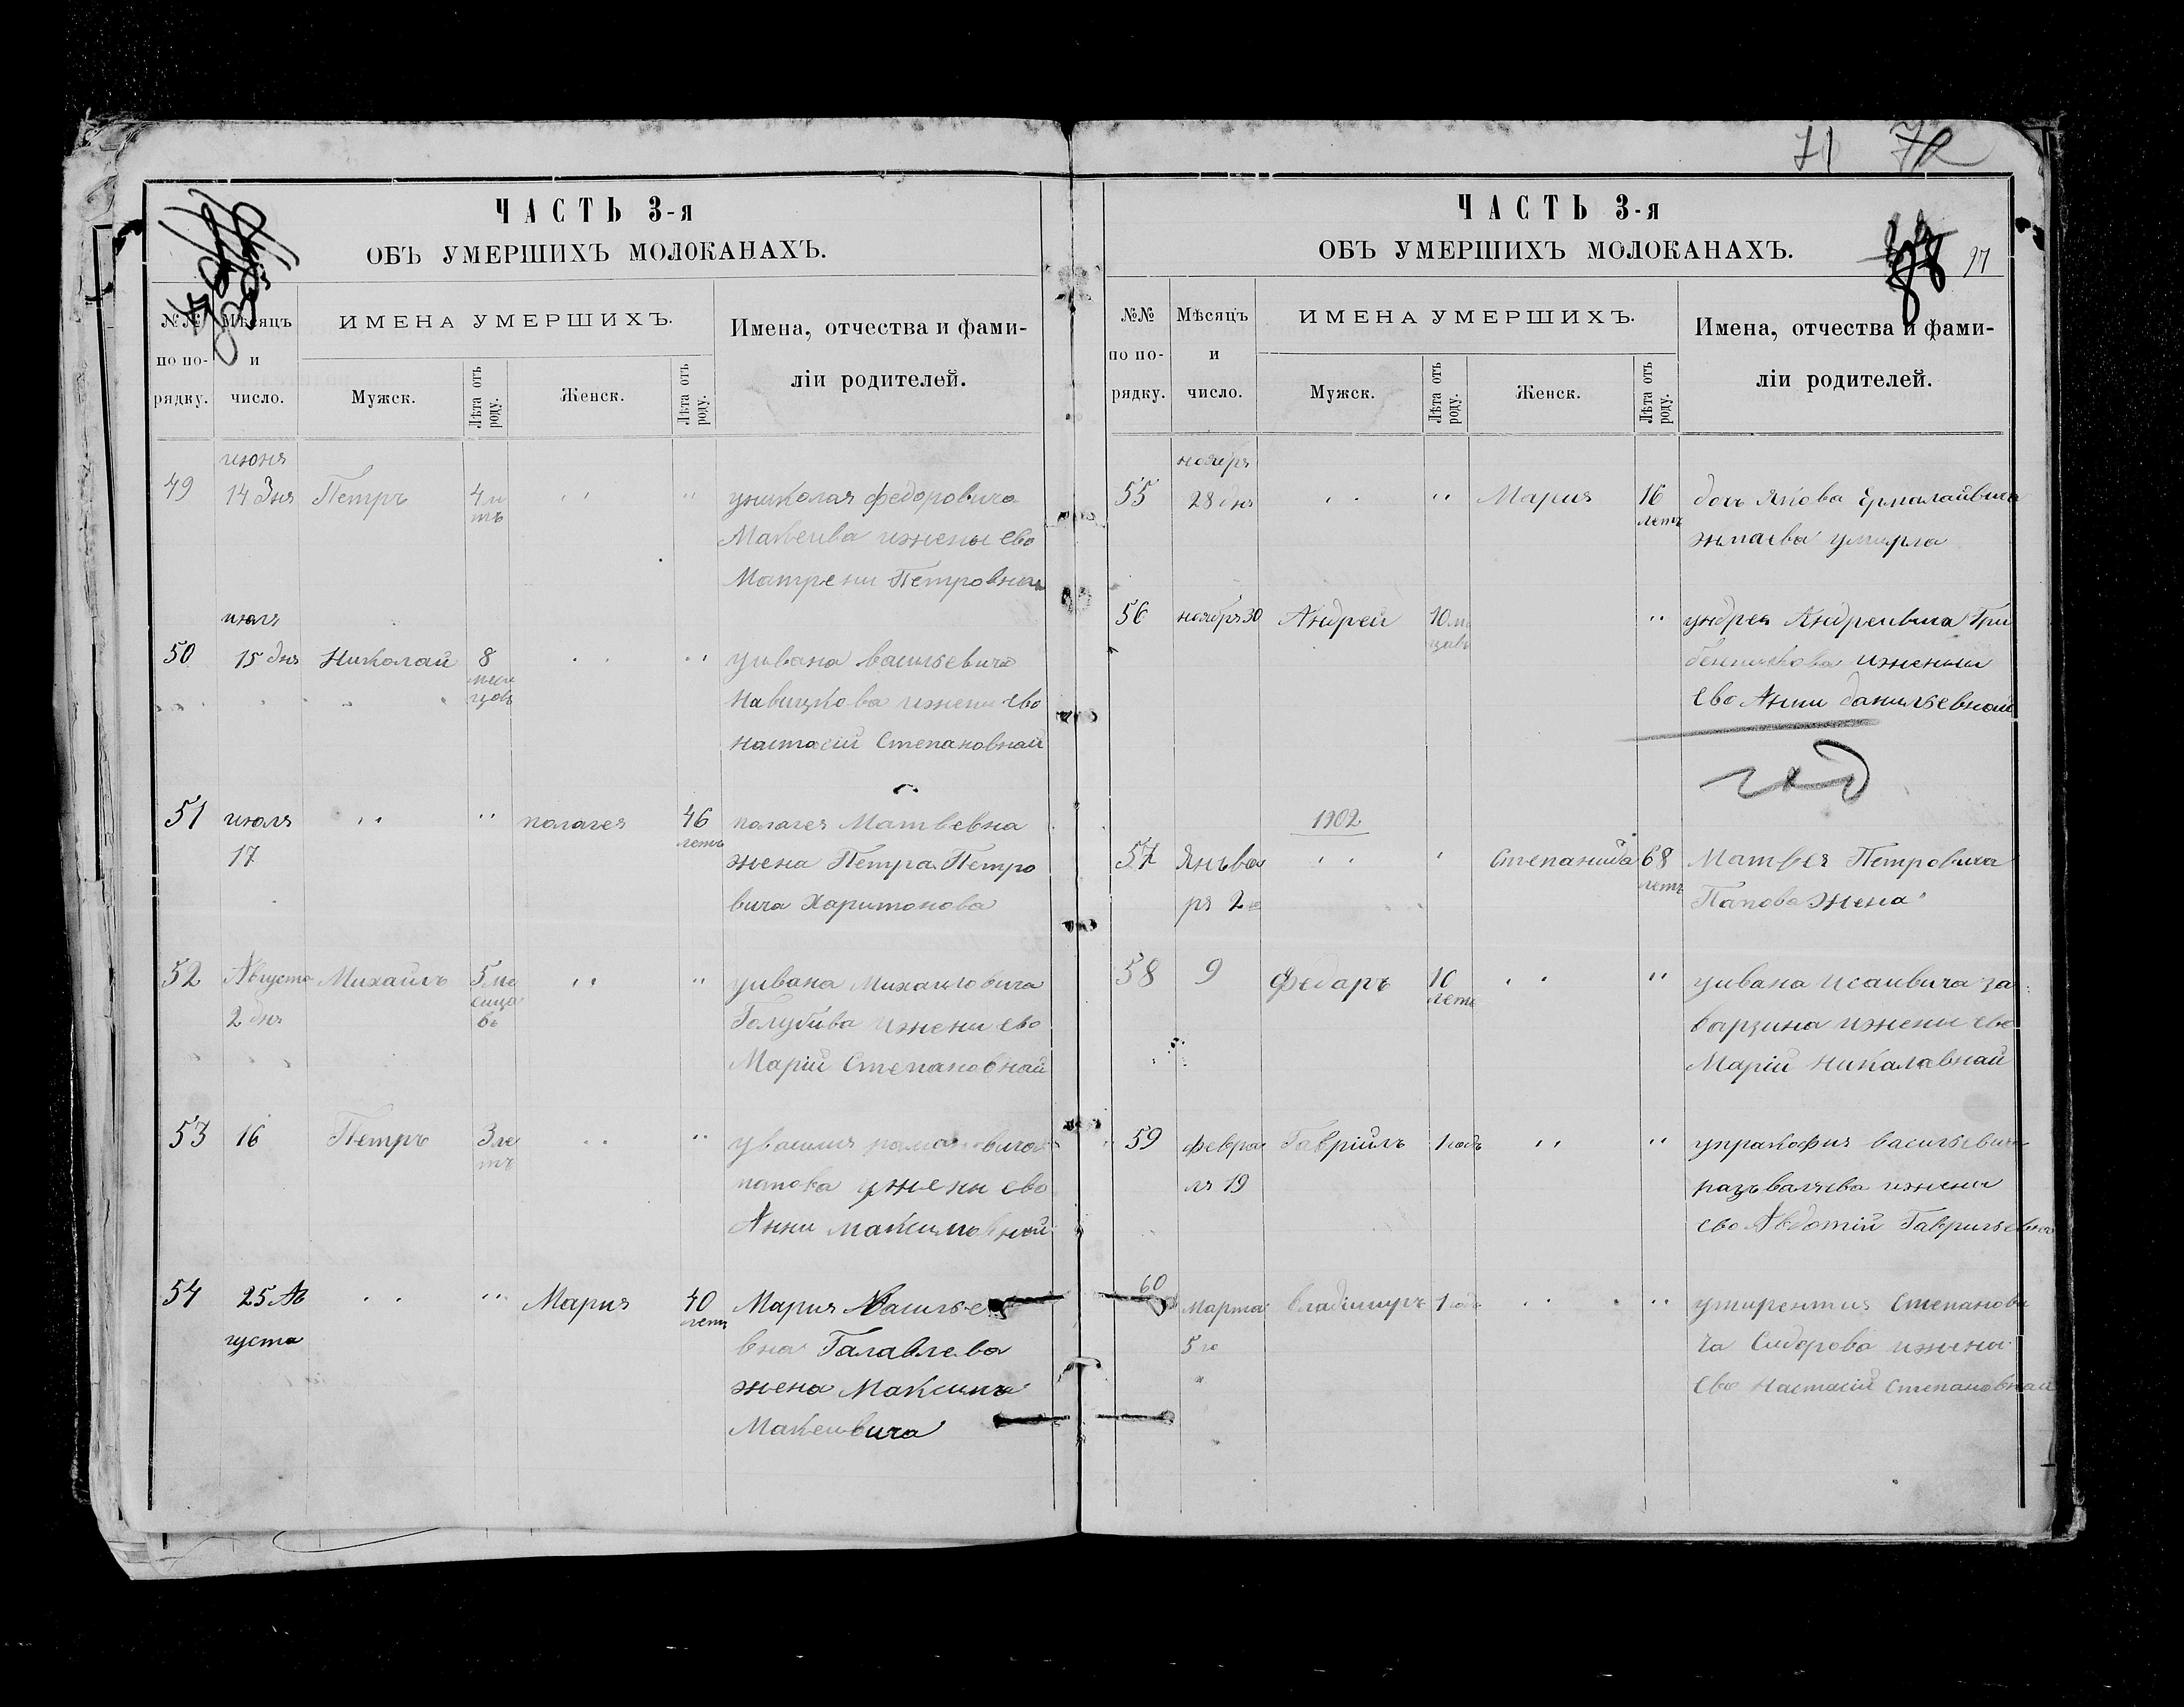 71 72
ЧАСТЬ 3-я
ОБЪ УМЕРШИХЪ МОЛОКАНАХЪ.
№№ по по-рядку.
Мѣсяцъ и число.
ИМЕНА УМЕРШИХЪ.
Мужск.
Лѣта отъ роду.
Женск.
Лѣта отъ роду.
Имена, отчества и фами-
ліи родителей.
июня
49 14 дня Петръ 4 ле " " " униколая федоровича
тъ Макеива ижены ево
Матрени Петровнай
июля
50 15 дня Николай 8 " " " уивана васильевича
меси Навицкова ижени ево
цовъ настасіи Степановнай
51 июля " " " полагея 46 полагея Матвевна
17 летъ жена Петра Петро
вича Харитонова
52 Августа Михаилъ 5 ме " " " уивана Михаиловича
2 дня сица Голубива ижени ево
въ Маріи Степановнай
53 16 Петръ 3 ле " " " увасилия
тъ попова ужени ево
Анни Максимовнай
54 25 Ав " " " Мария 40 Мария Васильe
густа летъ вна Галавлева
жена Максима
Макеивича
ЧАСТЬ 3-я
ОБЪ УМЕРШИХЪ МОЛОКАНАХЪ.
88 97
№№ по по-рядку.
Мѣсяцъ и число.
ИМЕНА УМЕРШИХЪ.
Мужск.
Лѣта отъ роду.
Женск.
Лѣта отъ роду.
Имена, отчества и фами-
ліи родителей.
ноября
55 28 дня " " " Мария 16 дочь Якова Ермалайвича
летъ жмаева умирла
56 ноября 30 Андрей 10 ме " ундрея Андреивича Гри
цавъ ижении
ево Анни данильевнай
год
1902
57 Янъва " " " Степанида 68 Матвея Петровича
ря 2 летъ Папова жена
58 9 Федаръ 10 " " " уивана Исаивича за
летъ варзина ижени ево
Маріи Никалавнай
59 февра Гавріилъ 1 годъ " " " упракофия васильевича
ля 19 разъваляева ижени
ево Авдотіи Гаврильевна
60 Марта владимиръ 1 годъ " " " утирентия Степанови
5 го ча Сидорова ижены
ево Настасіи Степановнай